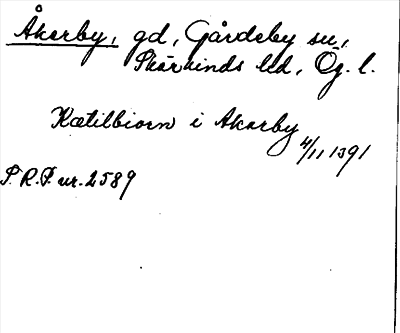 Åkerby, gd, Gårdeby sn,
Skärkinds hd, Ög. l.
Kætilbiorn i Akarby
4/11 1391
S.R.P. nr. 2589